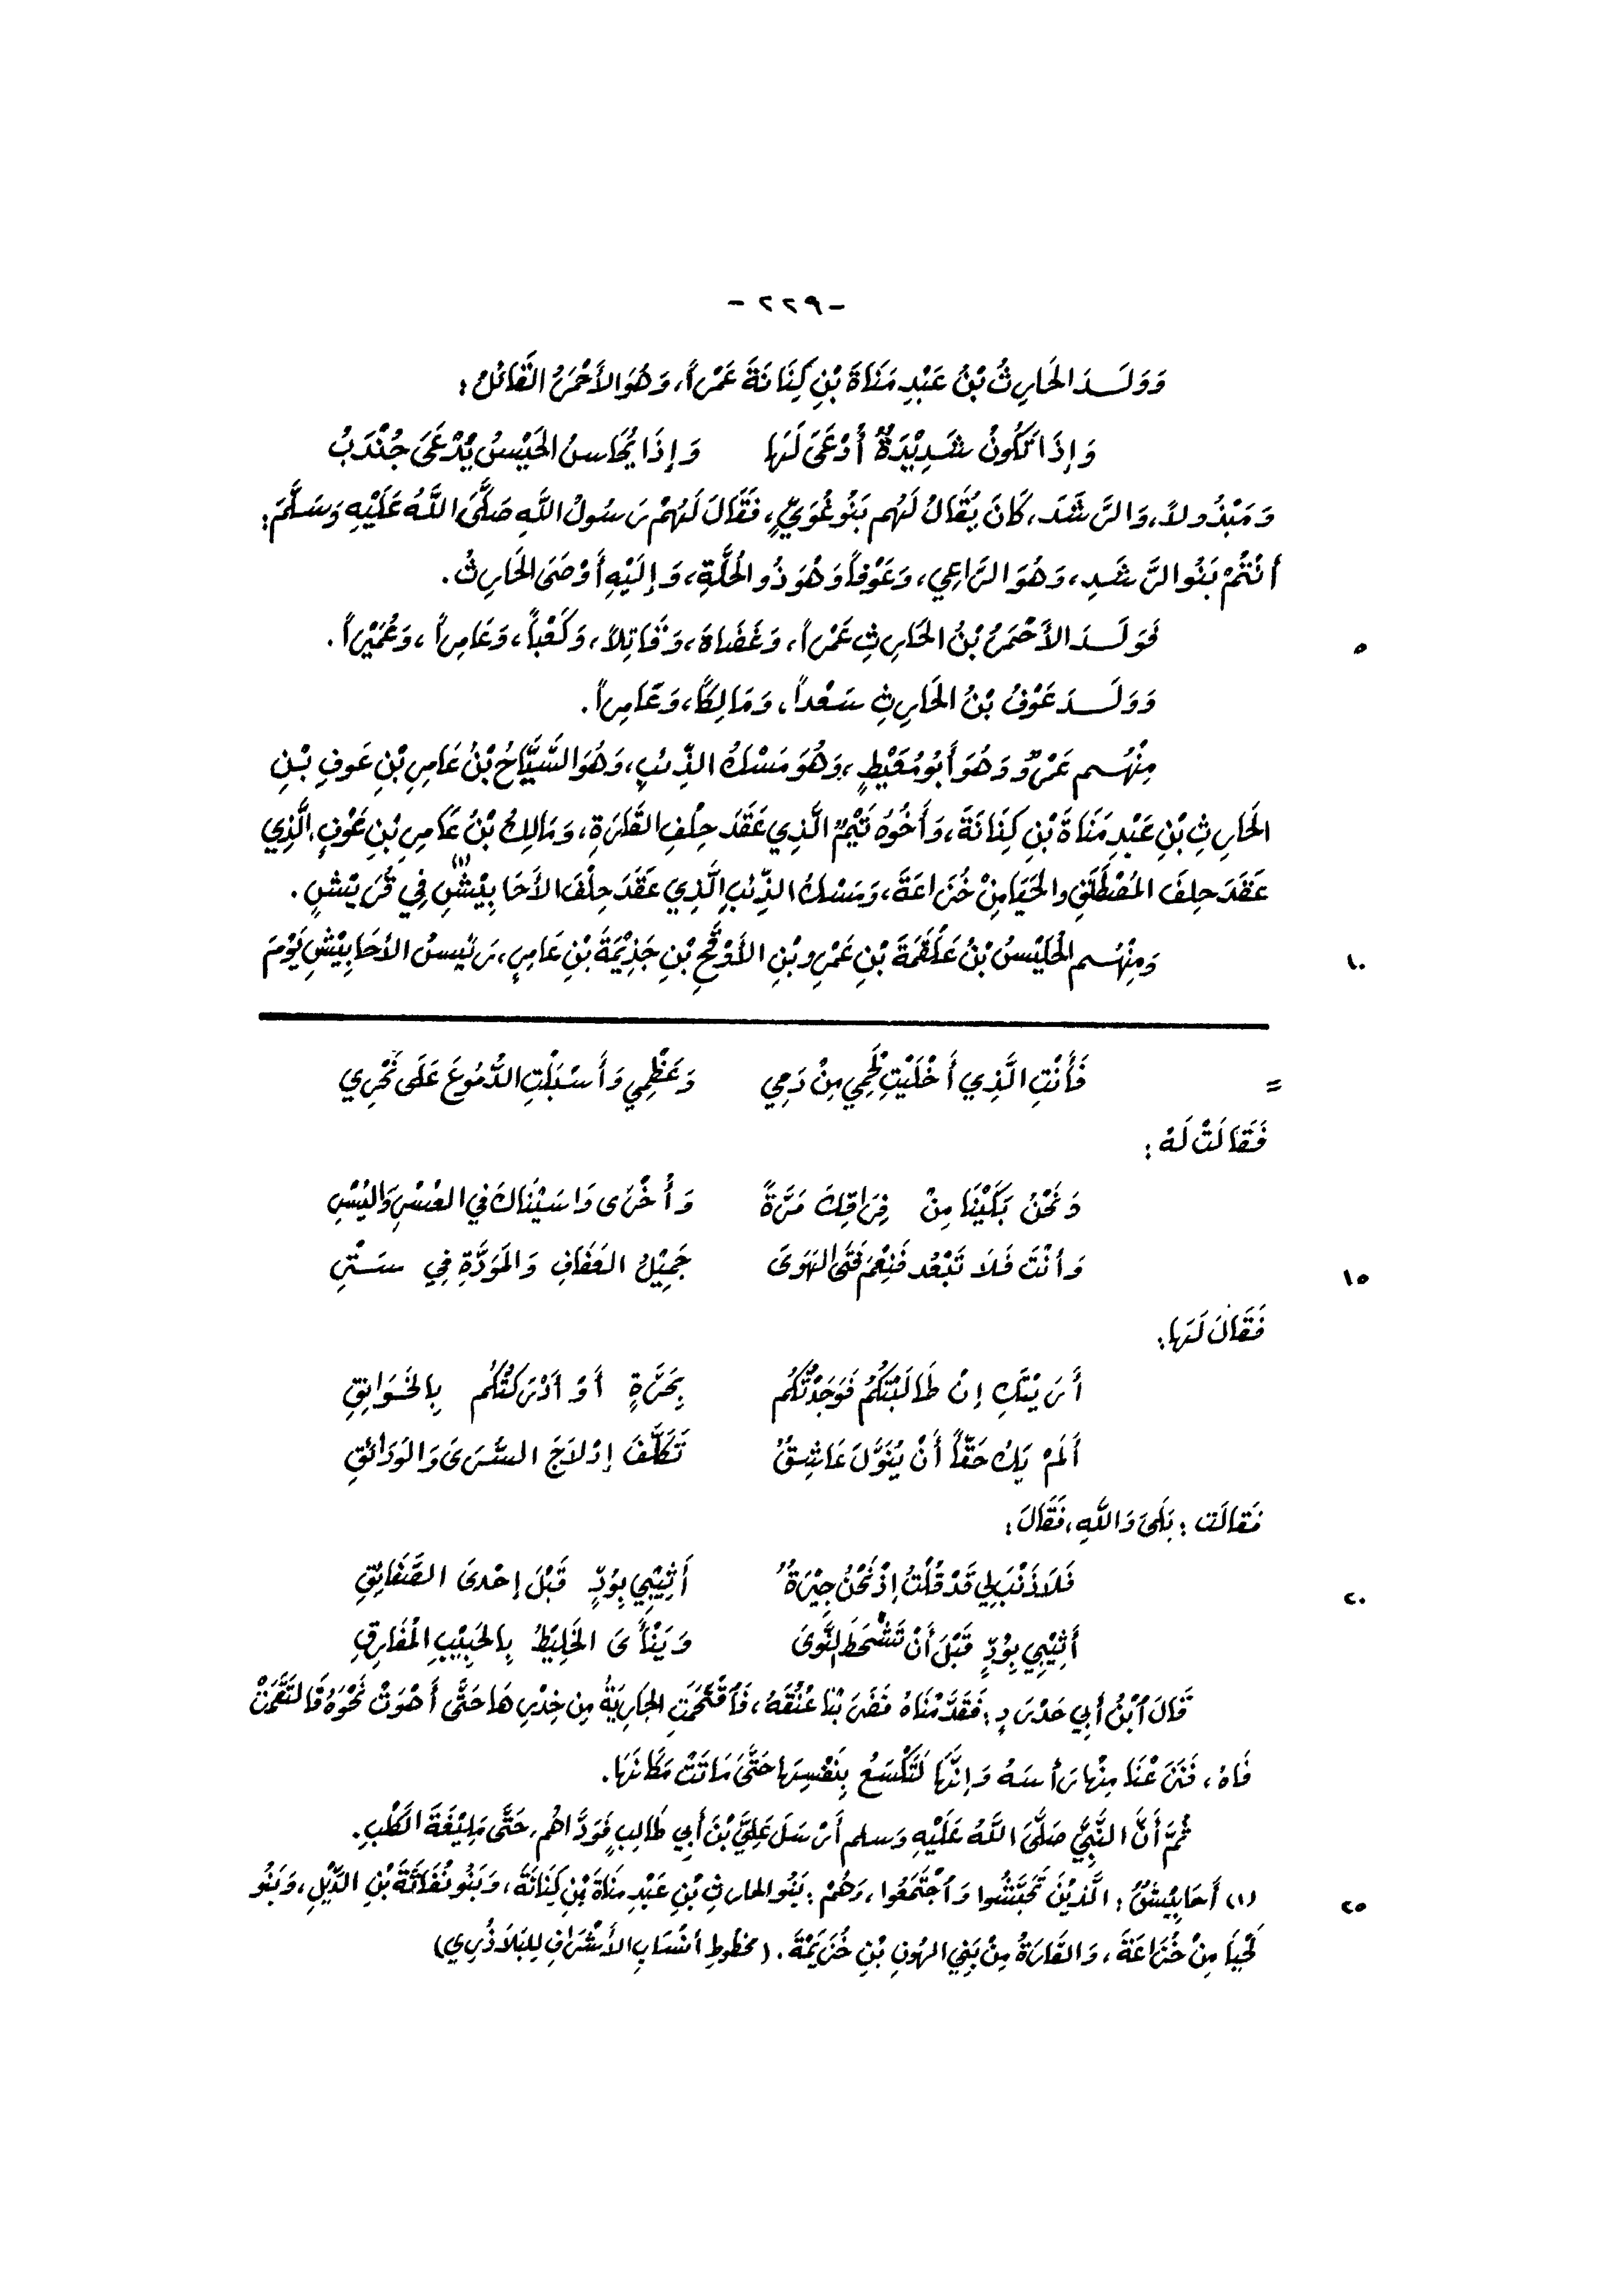 - ٢٢٩ -
وَوَلَـدَ الحَارِثُ بْنُ عَبْدِ مَنَاةَ بْنِ كِنَانَةَ عَمْراً، وَهُوَ الأَحْمَرُ القَائلُ:
وَإِذَا تَكُونُ شَدِيْدَةٌ أُدْعَى لَهَا    وَإِذَا يُحَاسُ الحَيْسُ يُدْعَى جُنْدَبُ
وَمَبْذُولاً، وَالرَّشَدَ، كَانَ يُقَالُ لَهُم بَنُو غُوَيٍّ، فَقَالَ لَهُمْ رَسُولُ اللَّهِ صَلَّى اللَّهُ عَلَيْهِ وَسَلَّمَ:
أَنْتُمْ بَنُو الرَّشَدِ، وَهُوَ الرَّاعِي، وَعَوْفاً وَهُوَ ذُو الحُلَّةِ، وَإِلَيْهِ أَوْصَى الحَارِثُ.
فَوَلَـدَ الأَحْمَرُ بْنُ الحَارِثِ عَمْراً، وَغَضَاةَ، وَقَاتِلاً، وَكَعْباً، وَعَامِراً، وَعُمَيْراً.
٥
وَوَلَـدَ عَوْفُ بْنُ الحَارِثِ سَعْداً، وَمَالِكاً، وَعَامِراً.
مِنْهُـم عَمْرٌو وَهُوَ أَبُو مُعَيْطٍ، وَهُوَ مَسْكُ الذِّئبِ، وَهُوَ السَّيَّاحُ بْنُ عَامِرِ بْنِ عَوفِ بْنِ
الحَارِثِ بْنِ عَبْدِ مَنَاةَ بْنِ كِنَانَةَ، وَأَخُوهُ تَيْمٌ الَّذِي عَقَدَ حِلْفَ القَارَةِ، وَمَالِكُ بْنُ عَامِرِ بْنِ عَوْفٍ، الَّذِي
عَقَدَ حِلفَ المُصْطَلَقِ والحَيَا مِنْ خُزَاعَةَ، وَمَسْكُ الذِّئْبِ الَّذِي عَقَدَ حِلْفَ الأَحَابِيْشِ(١) فِي قُرَيْشٍ.
وَمِنْهُـم الحُلَيْسُ بْنُ عَلْقَمَةَ بْنِ عَمْرِو بْنِ الأَوْقَحِ بْنِ جَذِيْمَةَ بْنِ عَامِرٍ، رَئِيسُ الأَحَابِيْشِ يَوْمَ
١٠
= فَأَنْتِ الَّذِي أَخْلَيْتِ لَحْمِي مِنْ دَمِي    وَعَظْمِي وَأَسْبَلْتِ الدُّمُوعَ عَلَى نَحْرِي
فَقَالَتْ لَهُ:
وَنَحْنُ بَكَيْنَا مِنْ فِرَاقِكَ مَرَّةً    وَأُخْرَى وَاسَيْنَاكَ فِي العُسْرِ وَاليُسْرِ
وَأَنْتَ فَلاَ تَبْعُد فَنِعْمَ فَتَى الهَوَى    جَمِيْلُ العَفَافِ وَالمَوَدَّةِ فِي سَتْرِ
١٥
فَقَالَ لَهَا:
أَرَيْتَكِ إِنْ طَالَبْتُكُم فَوَجَدْتُكُم    بِحَرَّةٍ أَوْ أَدْرَكْتُكُم بِالخَوَانِقِ
أَلَمْ يَكُ حَقّاً أَنْ يُنَوَّلَ عَاشِقٌ    تَكَلَّفَ إِدْلاَجَ السُّرَى وَالوَدَائقِ
فَقَالَت: بَلَى وَاللَّهِ، فَقَالَ:
فَلاَ ذَنْبَ لِي قَدْ قُلْتُ إِذْ نَحْنُ جِيْرَةٌ    أَثِيْبِي بِوُدٍّ قَبْلَ إِحْدَى الصَّفَائِقِ
٢٠
أَثِيْبِي بِوُدٍّ قَبْلَ أَنْ تَشْحَطَ النَّوَى    وَيَنْأَى الخَلِيْطُ بِالحَبِيْبِ المُفَارِقِ
قَالَ ابْنُ أَبِي حَدْرَدٍ: فَقَدَّمْنَاهُ فَضَرَبْنَا عُنُقَهُ، فَاقْتَحَمَتِ الجَارِيَةُ مِن خِدْرِهَا حَتَّى أَهْوَتْ نَحْوَهُ فَالتَقَمَتْ
فَاهُ، فَنَزَعْنَا مِنْهَا رَأسَهُ وَإِنَّهَا لَتَكْسَعُ بِنَفْسِهَا حَتَّى مَاتَتْ مَكَانَهَا.
ثُمَّ أَنَّ النَّبِيَّ صَلَّى اللَّهُ عَلَيْهِ وَسلم أَرْسَلَ عَلِيَّ بْنَ أَبِي طَالِبٍ فَوَدَّاهُم، حَتَّى مَلِيْغَةَ الكَلْبِ.
(١) أَحَابِيْشٌ: الَّذِيْنَ تَحَبَّشُوا وَاجْتَمَعُوا، وَهُمْ: بَنُو الحارثِ بْنِ عَبْدِ مَنَاةَ بْنِ كِنَانَةَ، وَبَنُو نُفَاثَةَ بْنِ الدِّيْلِ، وَبَنُو
٢٥
لَحْيَا مِنْ خُزَاعَةَ، وَالقَارَةُ مِنْ بَنِي الهُونِ بْنِ خُزَيْمَةَ. (مخطوط أنْسَابِ الأَشْرَافِ لِلبَلاَذُرِي)